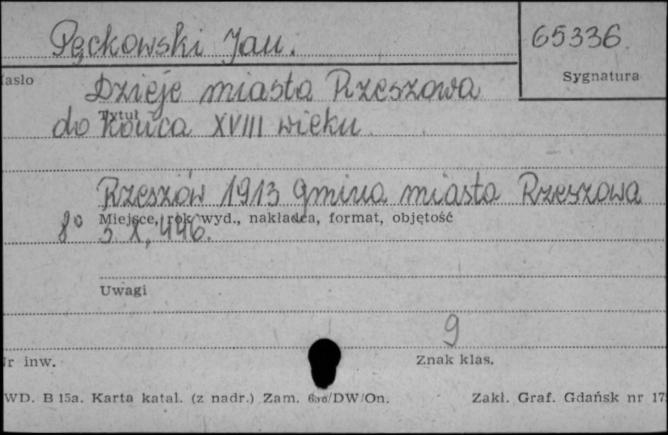 Pęckowski Jan. 65336.
Sygnatura
asło
Dzieje miasta Rzeszowa
Tytuł
do końca XVIII wieku
Rzeszów 1913 Gmina miasta Rzeszowa
Miejsce, rok wyd., nakładca, format, objętość
8° s. X, 446.
Uwagi
9
r inw. Znak klas.
WD. B 15a. Karta katal. (z nadr.) Zam. /DW/On. Zakł. Graf. Gdańsk nr 17